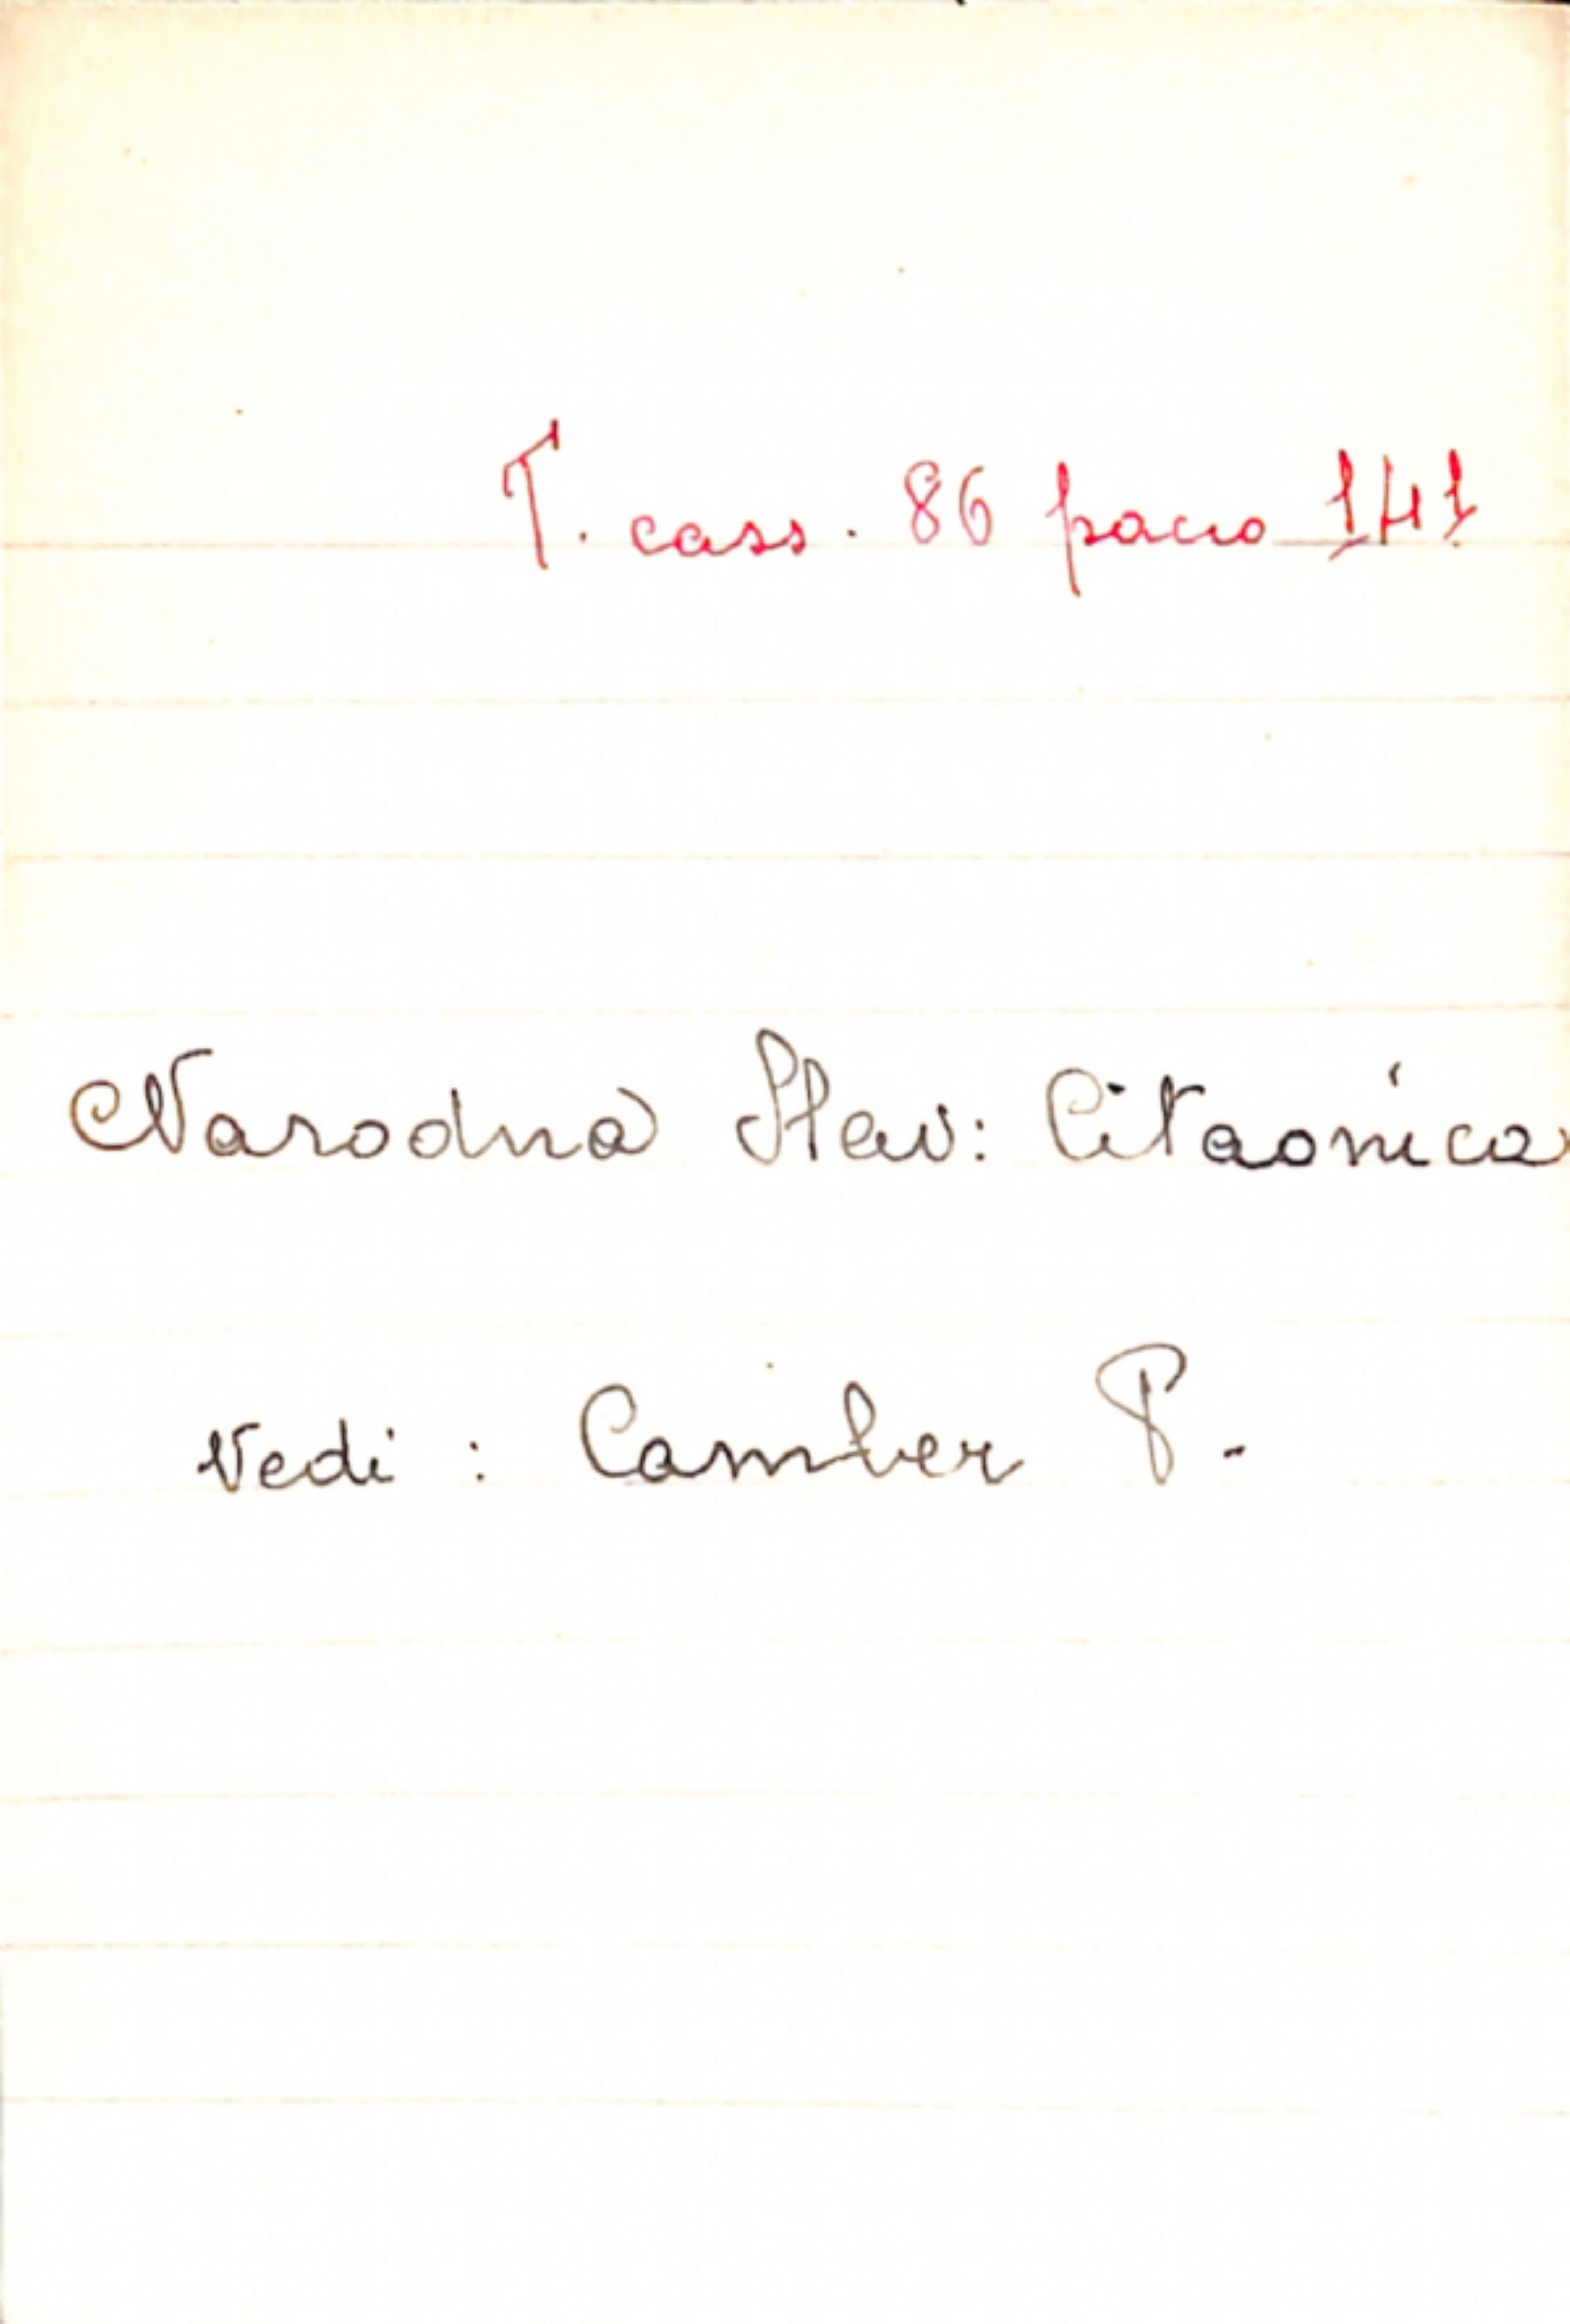 T. cass. 86 pacco 141
Narodna Slav: Citaonica
Vedi : Camber P.